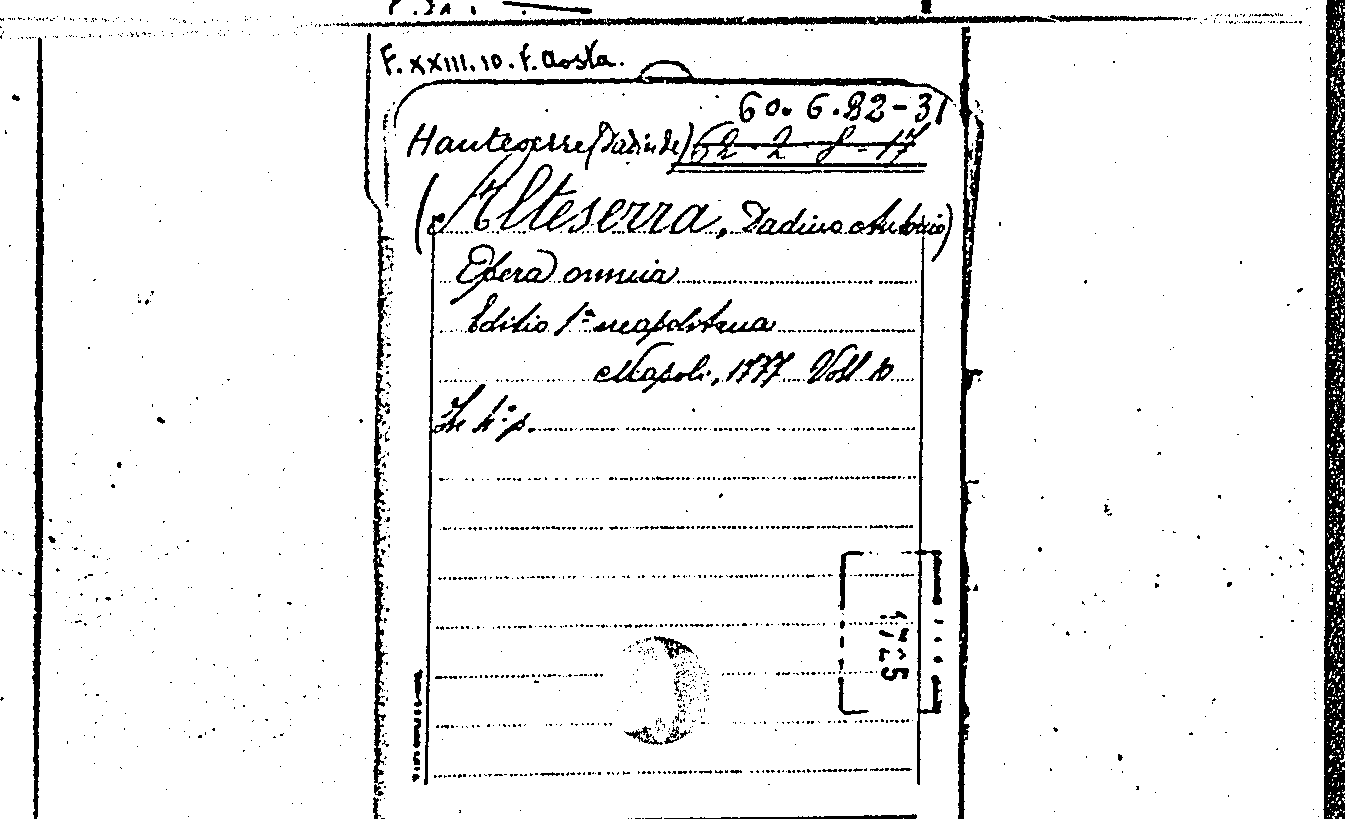 F. XXIII. 10. F. Aosta.
60. 6. 22-31
Hauteserre (Dadin de) 62-2-8-17
(Alteserra, Dadino Antonio)
Opera omnia
Editio 1ª neapolitana
Napoli, 1777 Voll 10
In 4º p.